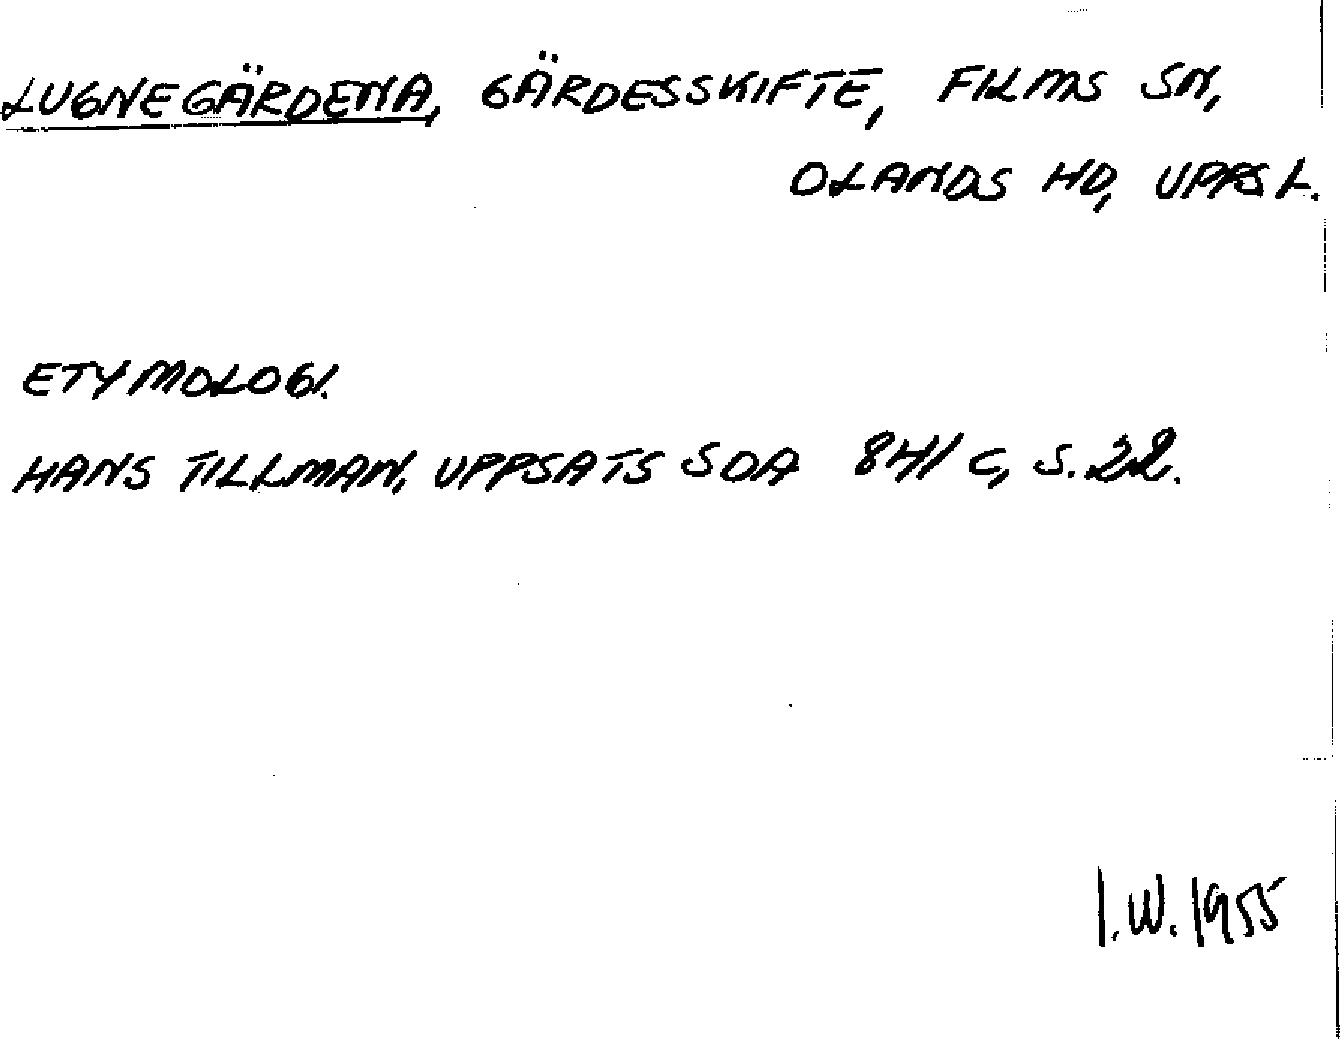 LUGNEGÄRDENA, GÄRDESSKIFTE, FILMS SN,
OLANDS HD, UPPS L.
ETYMOLOGI.
HANS TILLMAN, UPPSATS SOA 841 C, S. 22.
I.W. 1955